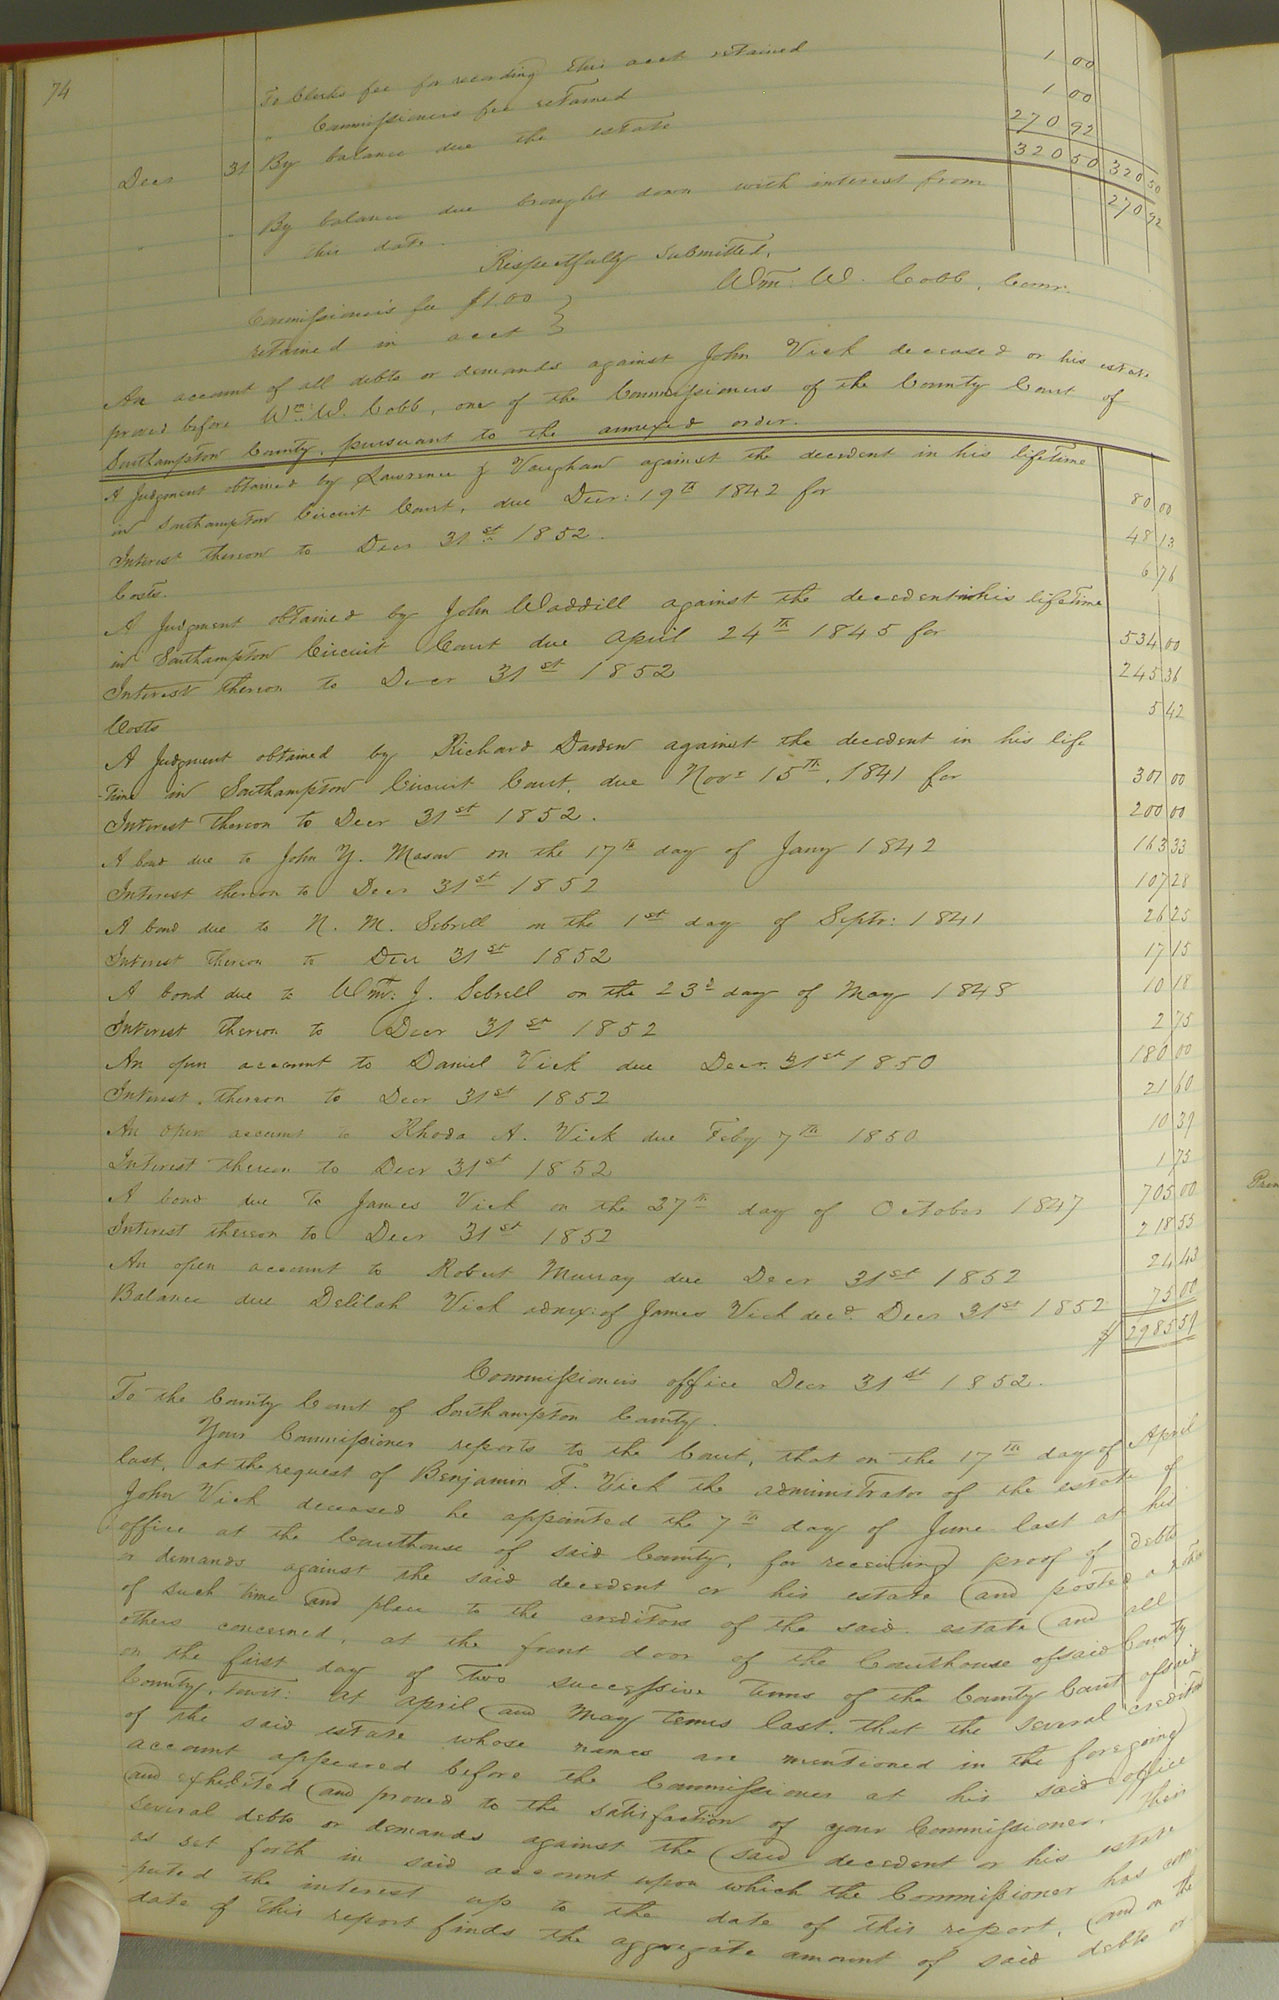 74
To Clerks fee for recording this acct retained 1 00
" Commissioners fee retained 1 00
Decr 31 By balance due the estate 270 92
320 50 320 50
" " By balance due brought down with interest from 270 92
this date.
Respectfully submitted,
Wm. W. Cobb, Comr.
Commissioners fee $1.00
retained in acct
An account of all debts or demands against John Vick deceased or his estate
proved before Wm. W. Cobb, one of the Commissioners of the County Court of
Southampton County, pursuant to the annexed order.
A Judgment obtained by Lawrence & Vaughan against the decedent in his lifetime
in Southampton Circuit Court, due Decr: 19th 1842 for 80 00
Interest thereon to Decr 31st 1852. 48 13
Costs. 6 76
A Judgment obtained by John Waddill against the decedent in his lifetime
in Southampton Circuit Court due April 24th 1845 for 534 00
Interest thereon to Decr 31st 1852 245 36
Costs 5 42
A Judgment obtained by Richard Darden against the decedent in his life
-time in Southampton Circuit Court, due Novr 15th, 1841 for 301 00
Interest thereon to Decr 31st 1852. 200 00
A bond due to John Y. Mason on the 17th day of Jany 1842 163 33
Interest thereon to Decr 31st 1852 107 28
A bond due to N. M. Sebrell on the 1st day of Septr: 1841 26 25
Interest thereon to Decr 31st 1852 17 15
A bond due to Wm: J. Sebrell on the 23d day of May 1848 10 18
Interest thereon to Decr 31st 1852 2 75
An open account to Daniel Vick due Decr. 31st 1850 180 00
Interest thereon to Decr 31st 1852 21 60
An open account to Rhoda A. Vick due Feby 7th 1850 10 39
Interest thereon to Decr 31st 1852 1 75
A bond due to James Vick on the 27th day of October 1847 705 00
Interest thereon to Decr 31st 1852 218 55
An open account to Robert Murray due Decr 31st 1852 24 43
Balance due Delilah Vick admx: of James Vick decd. Decr 31st 1852 75 00
$ 2985 59
Commissioners office Decr 31st 1852.
To the County Court of Southampton County.
Your Commissioner reports to the Court, that on the 17th day of April
last, at the request of Benjamin F. Vick the administrator of the estate of
John Vick deceased he appointed the 7th day of June last at his
office at the Courthouse of said County, for receiving proof of debts
or demands against the said decedent or his estate and posted a notice
of such time and place to the creditors of the said estate and all
others concerned, at the front door of the Courthouse of said County
on the first day of two successive terms of the County Court of said
County, towit: at April and May terms last. that the several creditors
of the said estate whose names are mentioned in the foregoing
account appeared before the Commissioner at his said office
and exhibited and proved to the satisfaction of your Commissioner, their
several debts or demands against the said decedent or his estate
as set forth in said account upon which the Commissioner has com-
puted the interest up to the date of this report, and on the
date of this report finds the aggregate amount of said debts or